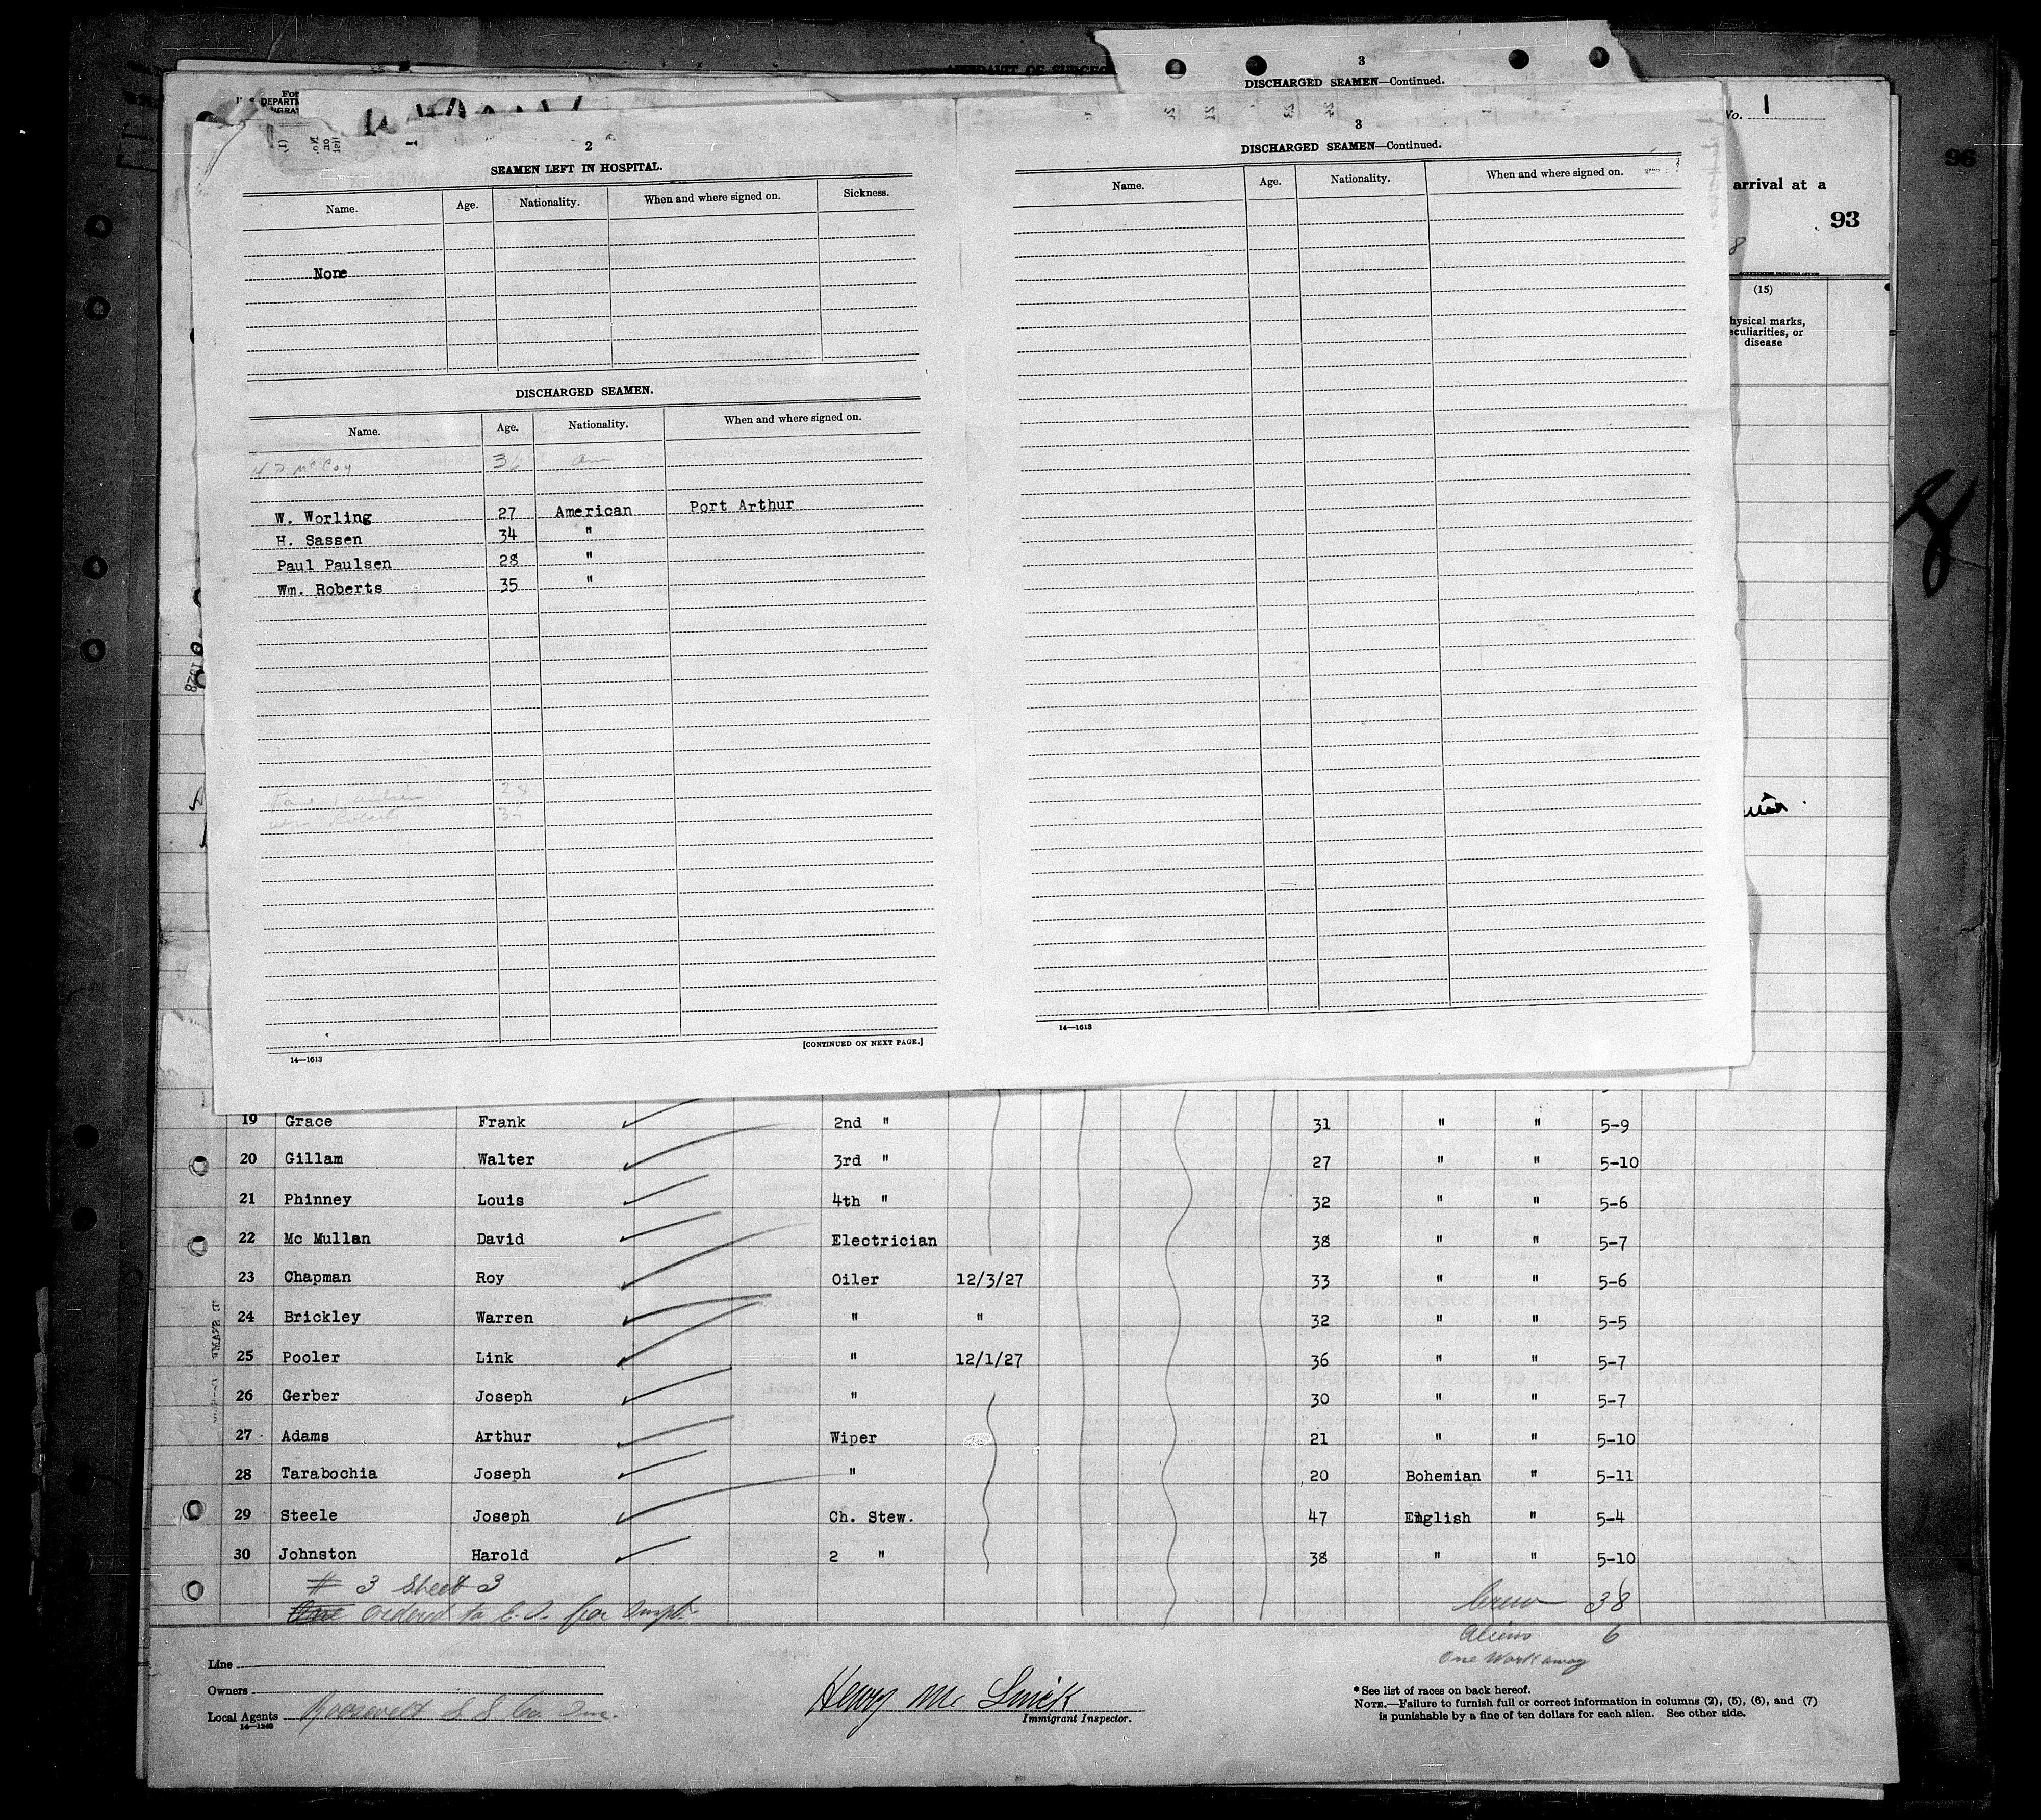 AFFIDAVIT OF SURGEO
3
DISCHARGED SEAMEN—Continued.
No. 1
96
arrival at a
93
8
(15)
hysical marks,
eculiarities, or
disease
2
SEAMEN LEFT IN HOSPITAL.
Name. Age. Nationality. When and where signed on. Sickness.
None
DISCHARGED SEAMEN.
Name. Age. Nationality. When and where signed on.
H. D. McCoy 36 Am
W. Worling 27 American Port Arthur
H. Sassen 34 "
Paul Paulsen 28 "
Wm. Roberts 35 "
28
Wm Roberts 35
14—1613 [CONTINUED ON NEXT PAGE.]
3
DISCHARGED SEAMEN—Continued.
Name. Age. Nationality. When and where signed on.
14—1613
19 Grace Frank 2nd " 31 " " 5-9
20 Gillam Walter 3rd " 27 " " 5-10
21 Phinney Louis 4th " 32 " " 5-6
22 Mc Mullan David Electrician 38 " " 5-7
23 Chapman Roy Oiler 12/3/27 33 " " 5-6
24 Brickley Warren " " 32 " " 5-5
25 Pooler Link " 12/1/27 36 " " 5-7
26 Gerber Joseph " 30 " " 5-7
27 Adams Arthur Wiper 21 " " 5-10
28 Tarabochia Joseph " 20 Bohemian " 5-11
29 Steele Joseph Ch. Stew. 47 English " 5-4
30 Johnston Harold 2 " 38 " " 5-10
# 3 Sheet 3
One ordered to E. I. for Inspt.
Crew 38
Aliens 6
One Workaway
Line
Owners
Local Agents Roosevelt S S Co. Inc.
14—1240
Henry M. Smick
Immigrant Inspector.
* See list of races on back hereof.
NOTE.—Failure to furnish full or correct information in columns (2), (5), (6), and (7)
is punishable by a fine of ten dollars for each alien. See other side.